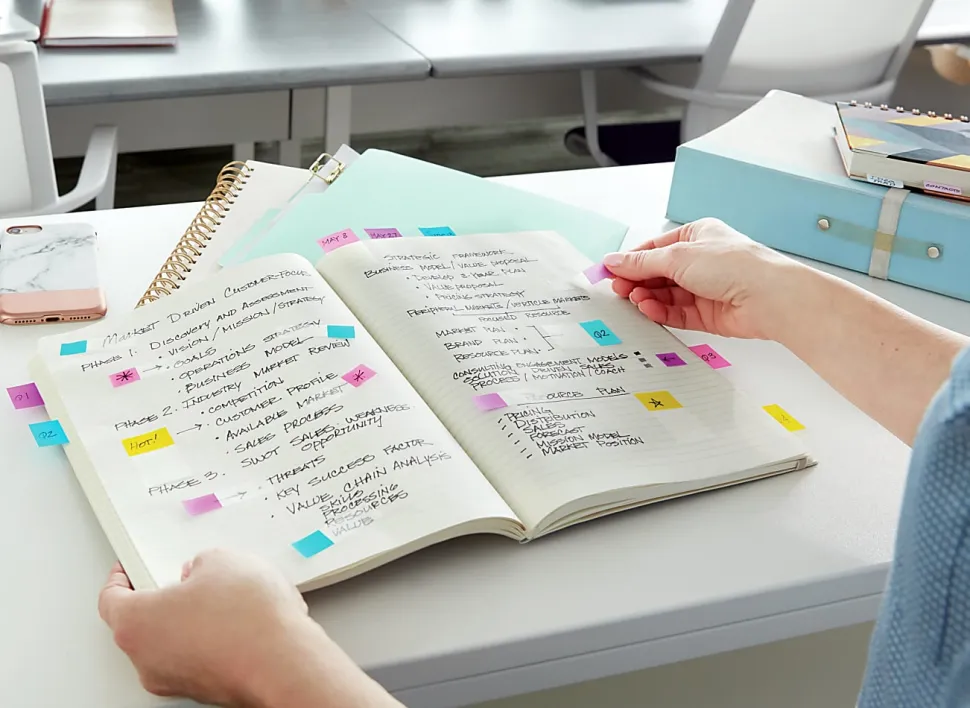 MAY 3
Q1
Q2
MARKET DRIVEN CUSTOMER-FOCUS
PHASE 1: DISCOVERY AND ASSESSMENT
• VISION/MISSION/STRATEGY
* → • GOALS
• OPERATIONS STRATEGY
• BUSINESS MODEL
• INDUSTRY MARKET REVIEW
*
PHASE 2.
• COMPETITION PROFILE
HOT! → • CUSTOMER MARKET
• AVAILABLE
• SALES PROCESS
• SWOT SALES, WEAKNESS
OPPORTUNITY
PHASE 3.
• THREATS
→ • KEY SUCCESS FACTOR
• VALUE CHAIN ANALYSIS
SKILLS
PROCESSING
RESOURCES
VALUE
STRATEGIC FRAMEWORK
BUSINESS MODEL/VALUE PROPOSAL
• DEVELOP 3 YEAR PLAN
• VALUE PROPOSAL
• PRICING STRATEGY
PERIPHERAL MARKETS/VERTICLE MARKETS
FOCUSED RESOURCE
MARKET PLAN •
BRAND PLAN •
RESOURCE PLAN •
Q2
CONSULTING ENGAGEMENT MODELS
SOLUTION DRIVEN SALES
PROCESS / MOTIVATION / COACH
Q3
RESOURCE PLAN
PRICING
DISTRIBUTION
SALES
FORECAST
MISSION MODEL
MARKET POSITION